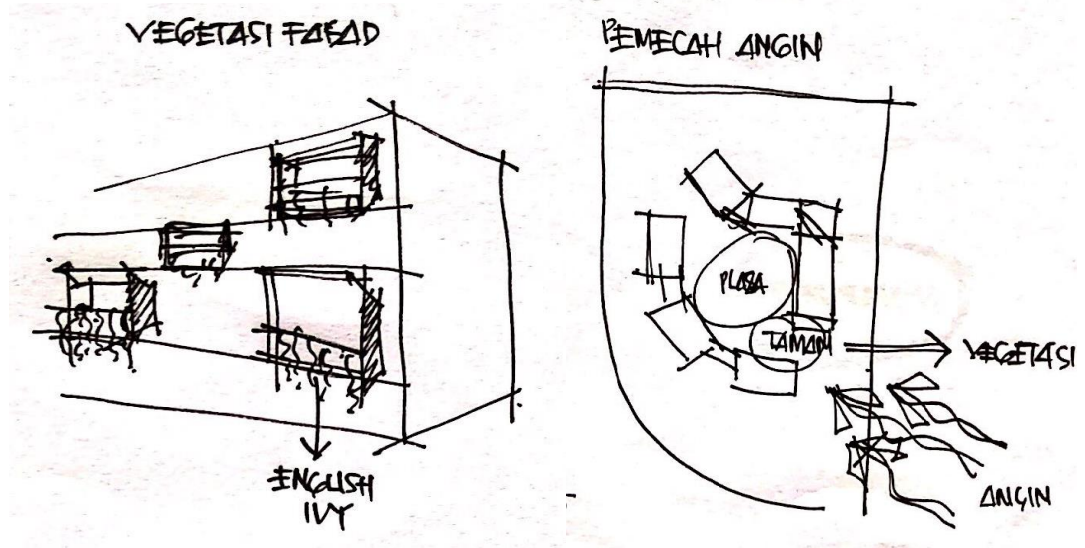 VEGETASI FASAD
ENGLISH
IVY
PEMECAH ANGIN
PLASA
TAMAN
VEGETASI
ANGIN